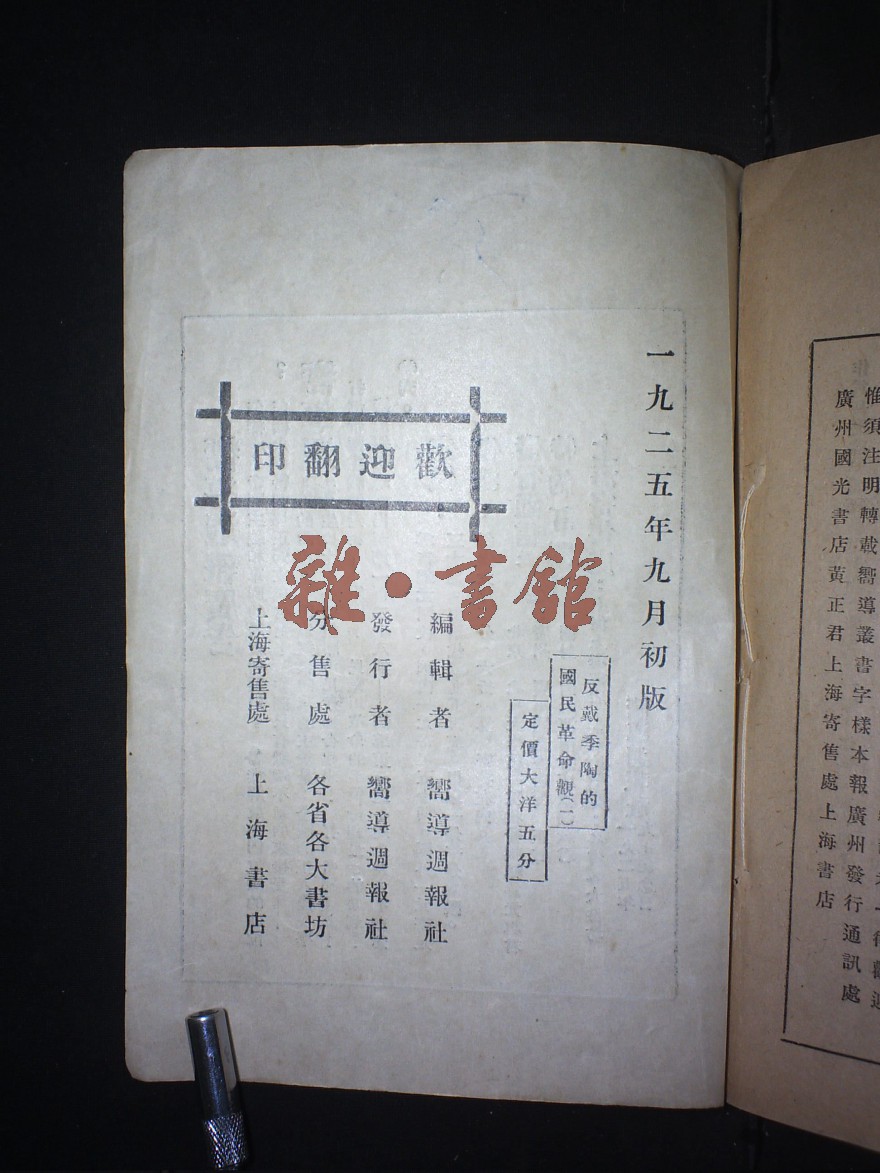 惟須注明轉載嚮導叢書字樣本報廣州發行通訊處
廣州國光書店黃正君上海寄售處上海書店
一九二五年九月初版
反戴季陶的
國民革命觀（一）
定價大洋五分
歡迎翻印
編輯者 嚮導週報社
發行者 嚮導週報社
分售處 各省各大書坊
上海寄售處 上海書店
雜·書館